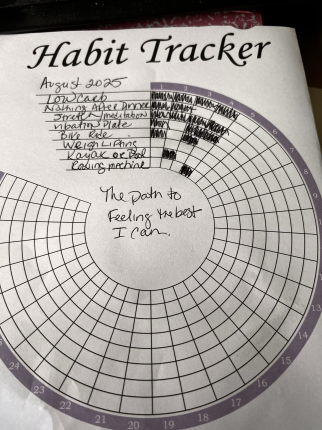 Habit Tracker
August 2025
Low Carb
Nothing After Dinner
Stretch/meditation
Vibration Plate
Bike Ride
Weigh Lifting
Kayak or Pool
Rowing machine
The path to
feeling the best
I can.
1
2
3
4
5
6
7
8
9
13
14
15
16
17
18
19
20
21
22
23
24